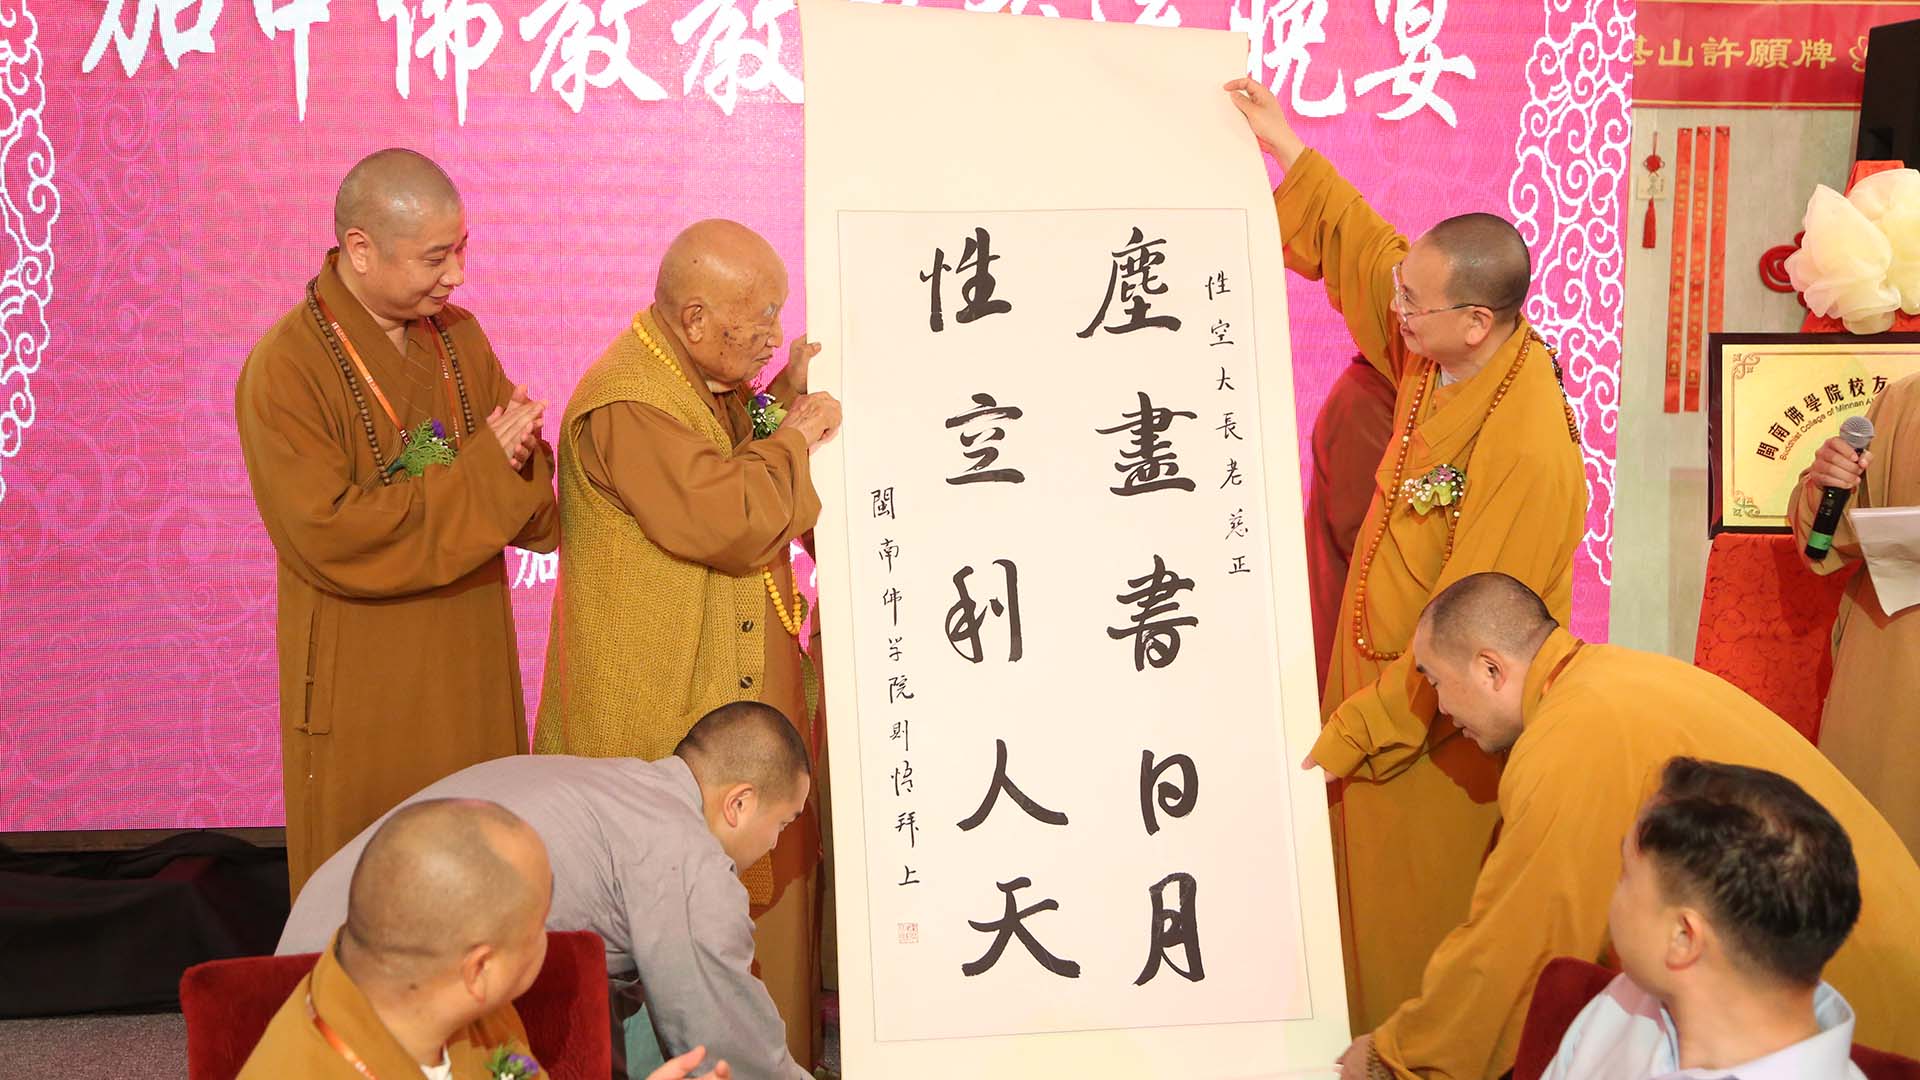 加中佛教教
晚宴
湛山許願牌
性空大長老慈正
塵畫書日月
性立利人天
閩南佛学院則悟拜上
加
閩南佛學院校友
Buddhist College of Minnan